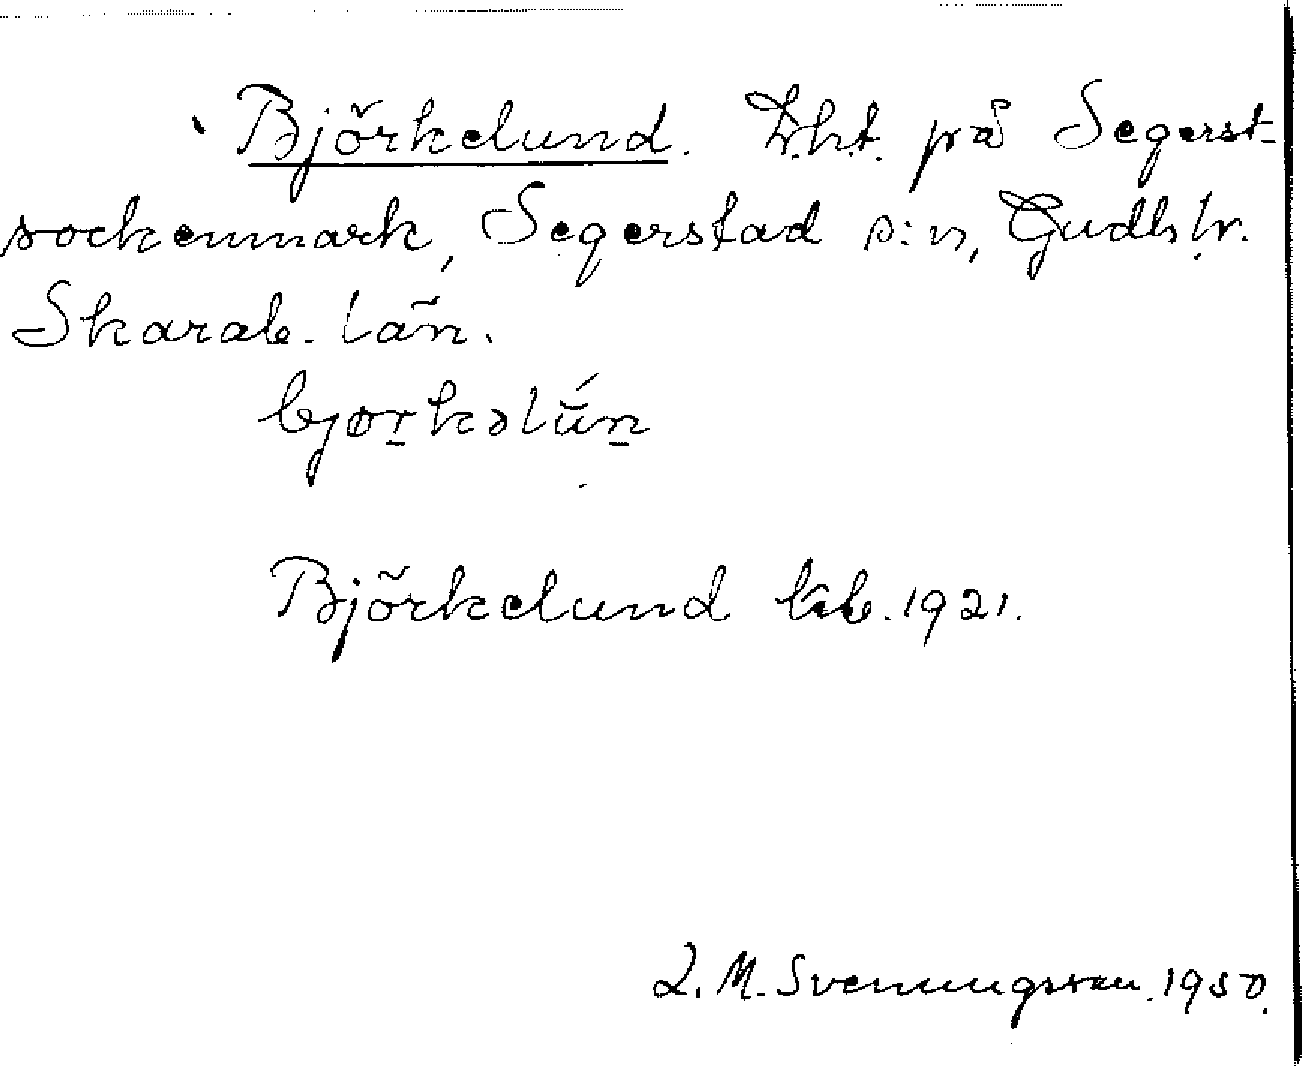 Björkelund. Lht. på Segerst-
sockenmark, Segerstad s:n, Gudh hr.
Skarab. län.
bjørkəlún
Björkelund 1921.
L. M. Svenungsson. 1950.